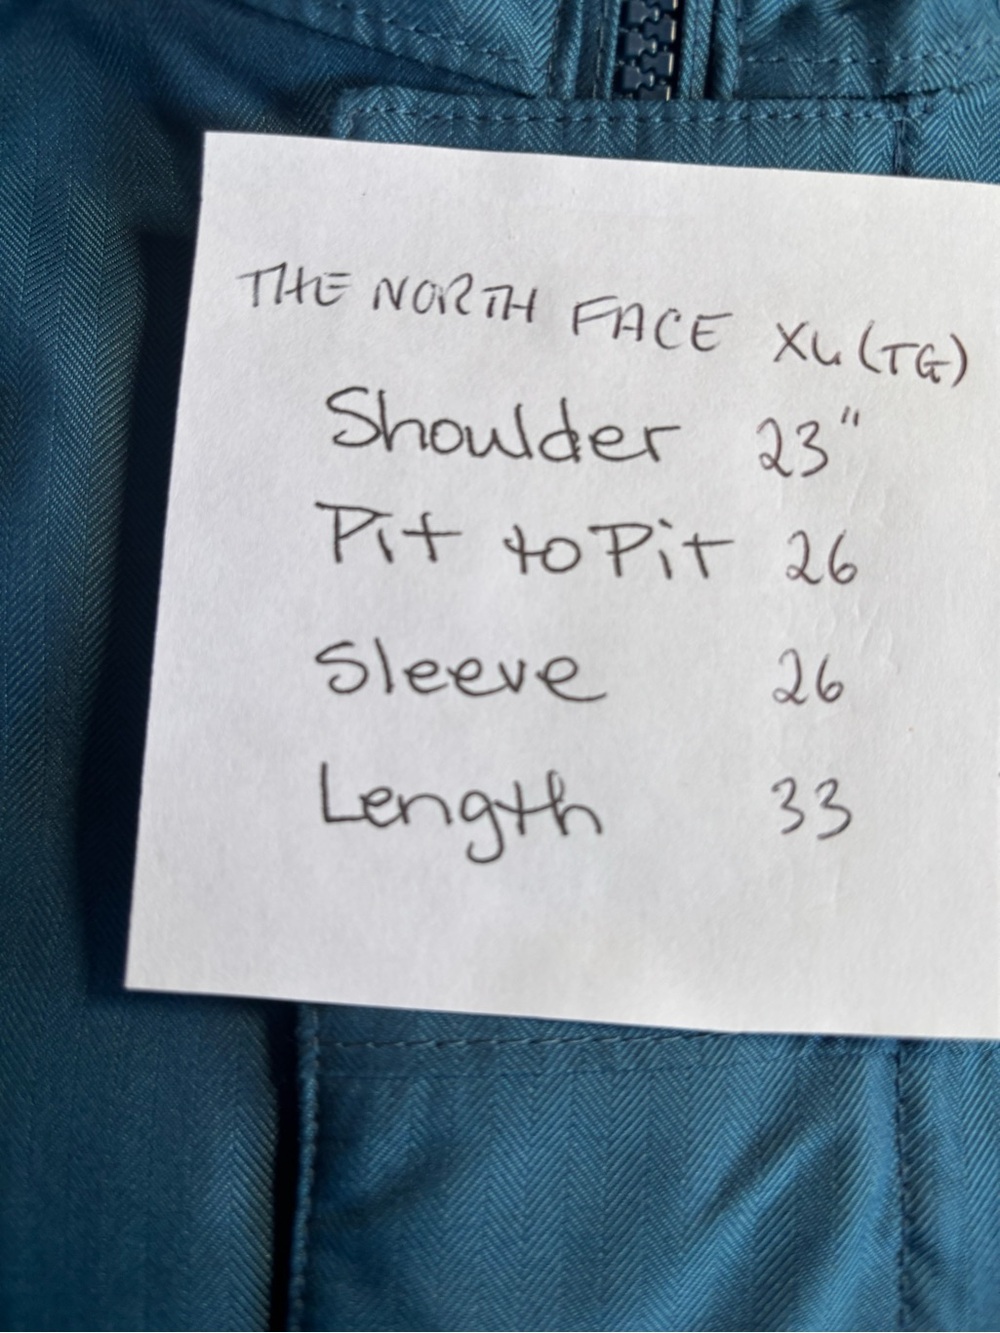 THE NORTH FACE XL (TG)
Shoulder 23"
Pit to Pit 26
Sleeve 26
Length 33